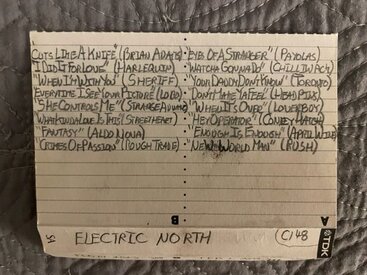 CUTS LIKE A KNIFE" (BRIAN ADAMS)
"I DID IT FOR LOVE" (HARLEQUIN)
"WHEN I'M WITH YOU" (SHERIFF)
EVERYTIME I SEE YOUR PICTURE (LUBA)
"SHE CONTROLS ME" (STRANGE ADVANCE)
WHAT KINDA LOVE IS THIS (STREETHEART)
"FANTASY" (ALDO NOVA)
"CRIMES OF PASSION" (ROUGH TRADE)
"EYES OF A STRANGER" (PAYOLAS)
"WATCHA GONNA DO" (CHILLIWACK)
"YOUR DADDY DON'T KNOW" (TORONTO)
"DON'T MAKE YA FEEL" (HEADPINS)
"WHEN IT'S OVER" (LOVERBOY)
"HEY OPERATOR" (CONEY HATCH)
"ENOUGH IS ENOUGH" (APRIL WINE)
"NEW WORLD MAN" (RUSH)
B
A
ELECTRIC NORTH
C148
TDK